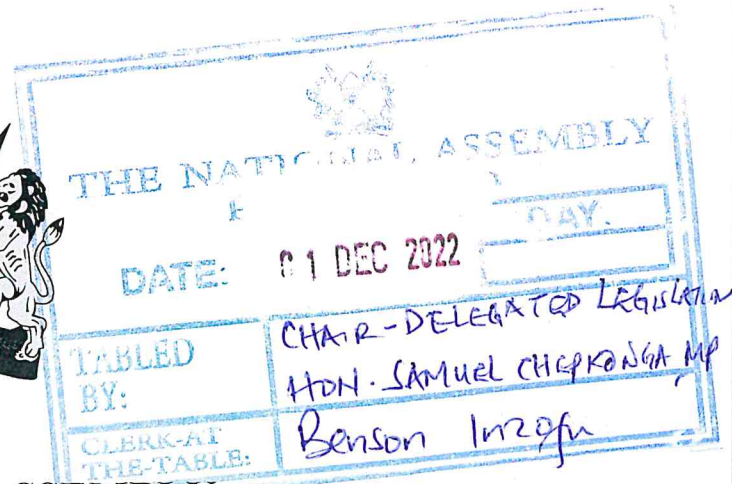 THE NATIONAL ASSEMBLY
DAY.
DATE: 01 DEC 2022
TABLED BY:
CHAIR-DELEGATED LEGISLATION
HON. SAMUEL CHEPKONGA MP
CLERK-AT THE-TABLE:
Benson Inzofu